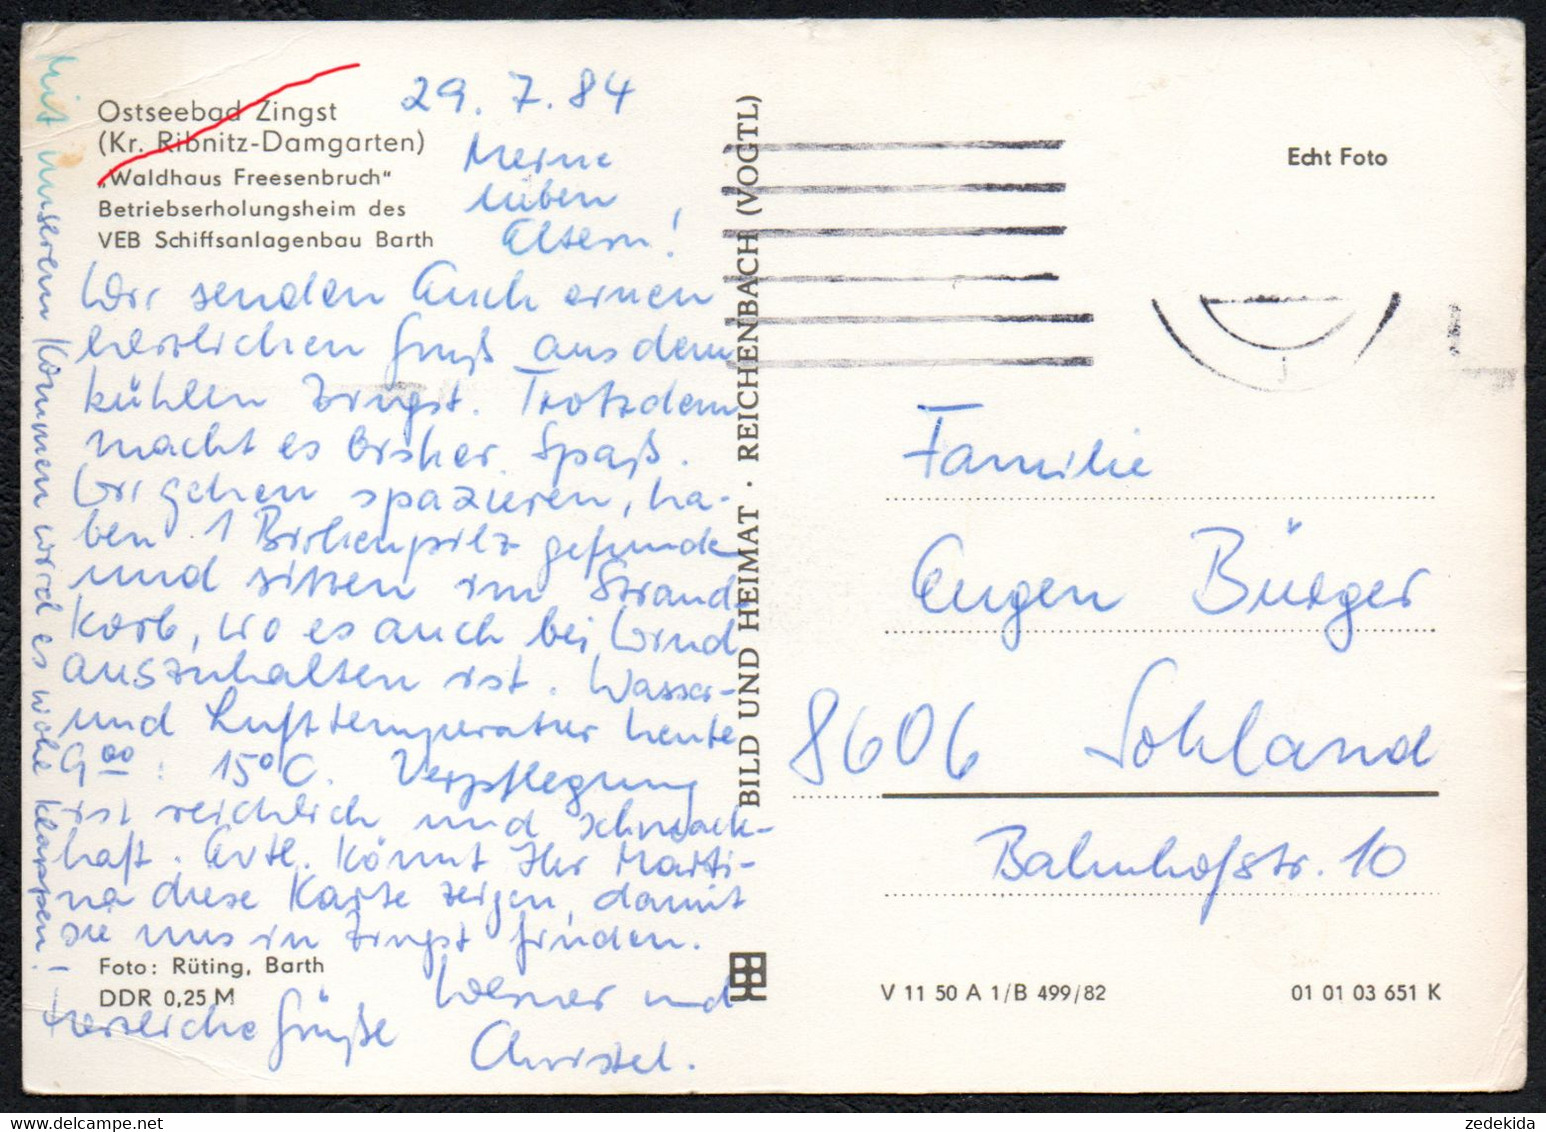 Ostseebad Zingst
(Kr. Ribnitz-Damgarten)
„Waldhaus Freesenbruch"
Betriebserholungsheim des
VEB Schiffsanlagenbau Barth
29. 7. 84
Meine
lieben
Eltern!
Wir senden Euch einen
herzlichen Gruß aus dem
kühlen Zingst. Trotzdem
macht es bisher Spaß.
Wir gehen spazieren, ha-
ben 1 Birkenpilz gefunden
und sitzen im Strand-
korb, wo es auch bei Wind
auszuhalten ist. Wasser-
und Lufttemperatur heute
9⁰⁰: 15°C. Verpflegung
ist reichlich und schmack-
haft. Evtl. könnt Ihr Marti-
na diese Karte zeigen, damit
sie uns in Zingst finden.
Foto: Rüting, Barth
DDR 0,25 M
Herzliche Grüße
Werner und
Christel.
Mit unserem Kommen wird es wohl klappen!
BILD UND HEIMAT · REICHENBACH (VOGTL)
Echt Foto
Familie
Eugen Bürger
8606 Sohland
Bahnhofstr. 10
V 11 50 A 1/B 499/82
01 01 03 651 K
delcampe.net
zedekida